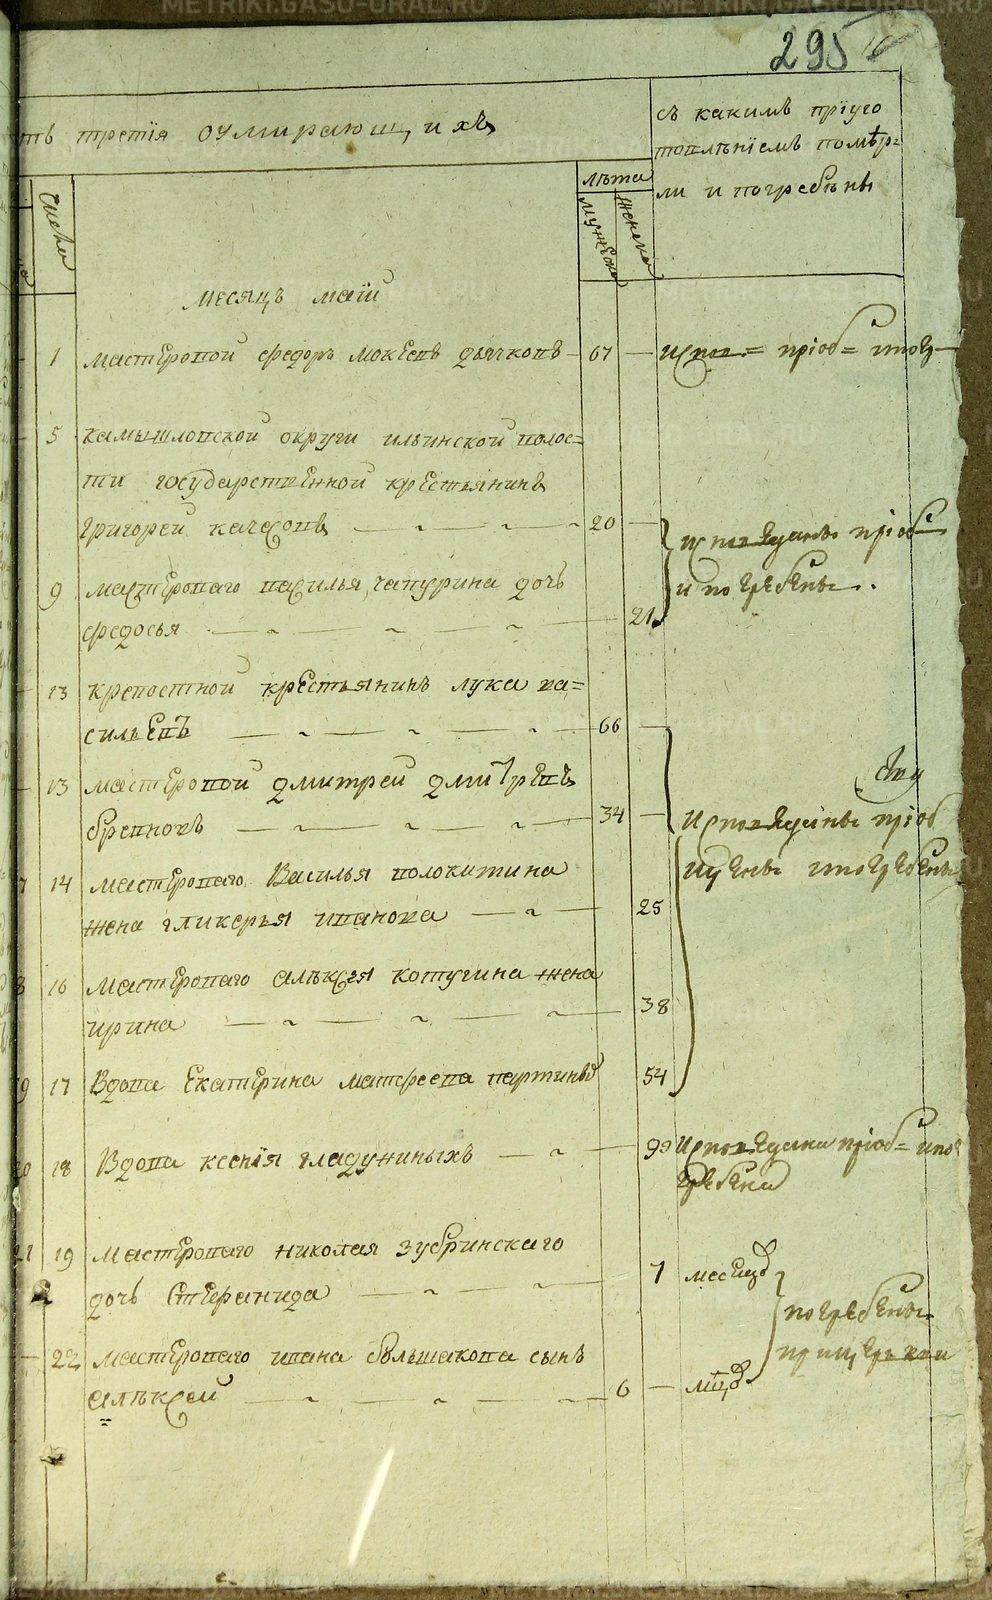 METRIKI.GASO-URAL.RU
295
ть третiя оумирающихъ
съ какимъ прiуго
товлѣнiемъ помѣр-
ли и погребѣны
Числа
лѣта
мужеска
женска
месяцъ маiй
1 мастеровой федоръ мокеевъ дьячковъ 67 испов= прiоб= ипогр
5 камышловской округи ильинской волос=
ти государственной крестьянинъ
григорей качесовъ 20
исповѣданы прiоб
9 мастероваго василья чапурина дочь
и погребены
федосья 21
13 крепостной крестьянинъ лука ва=
сильевъ 66
13 мастеровой дмитрей дмитревъ
бревновъ 34
исповѣданы прiоб
щены ипогребены
14 мастероваго Василья половитина
жена гликерья иванова 25
16 мастероваго алѣксея котугина жена
ирина 38
17 Вдова Екатерина матфеева 54
18 Вдова ксенiя гладуниныхъ 99 исповѣдана прiоб= ипо
гребена
19 мастероваго николая зубринскаго
дочь Стефанида 7 месяцъ
погребены
22 мастероваго ивана большакова сынъ
алѣксей 6